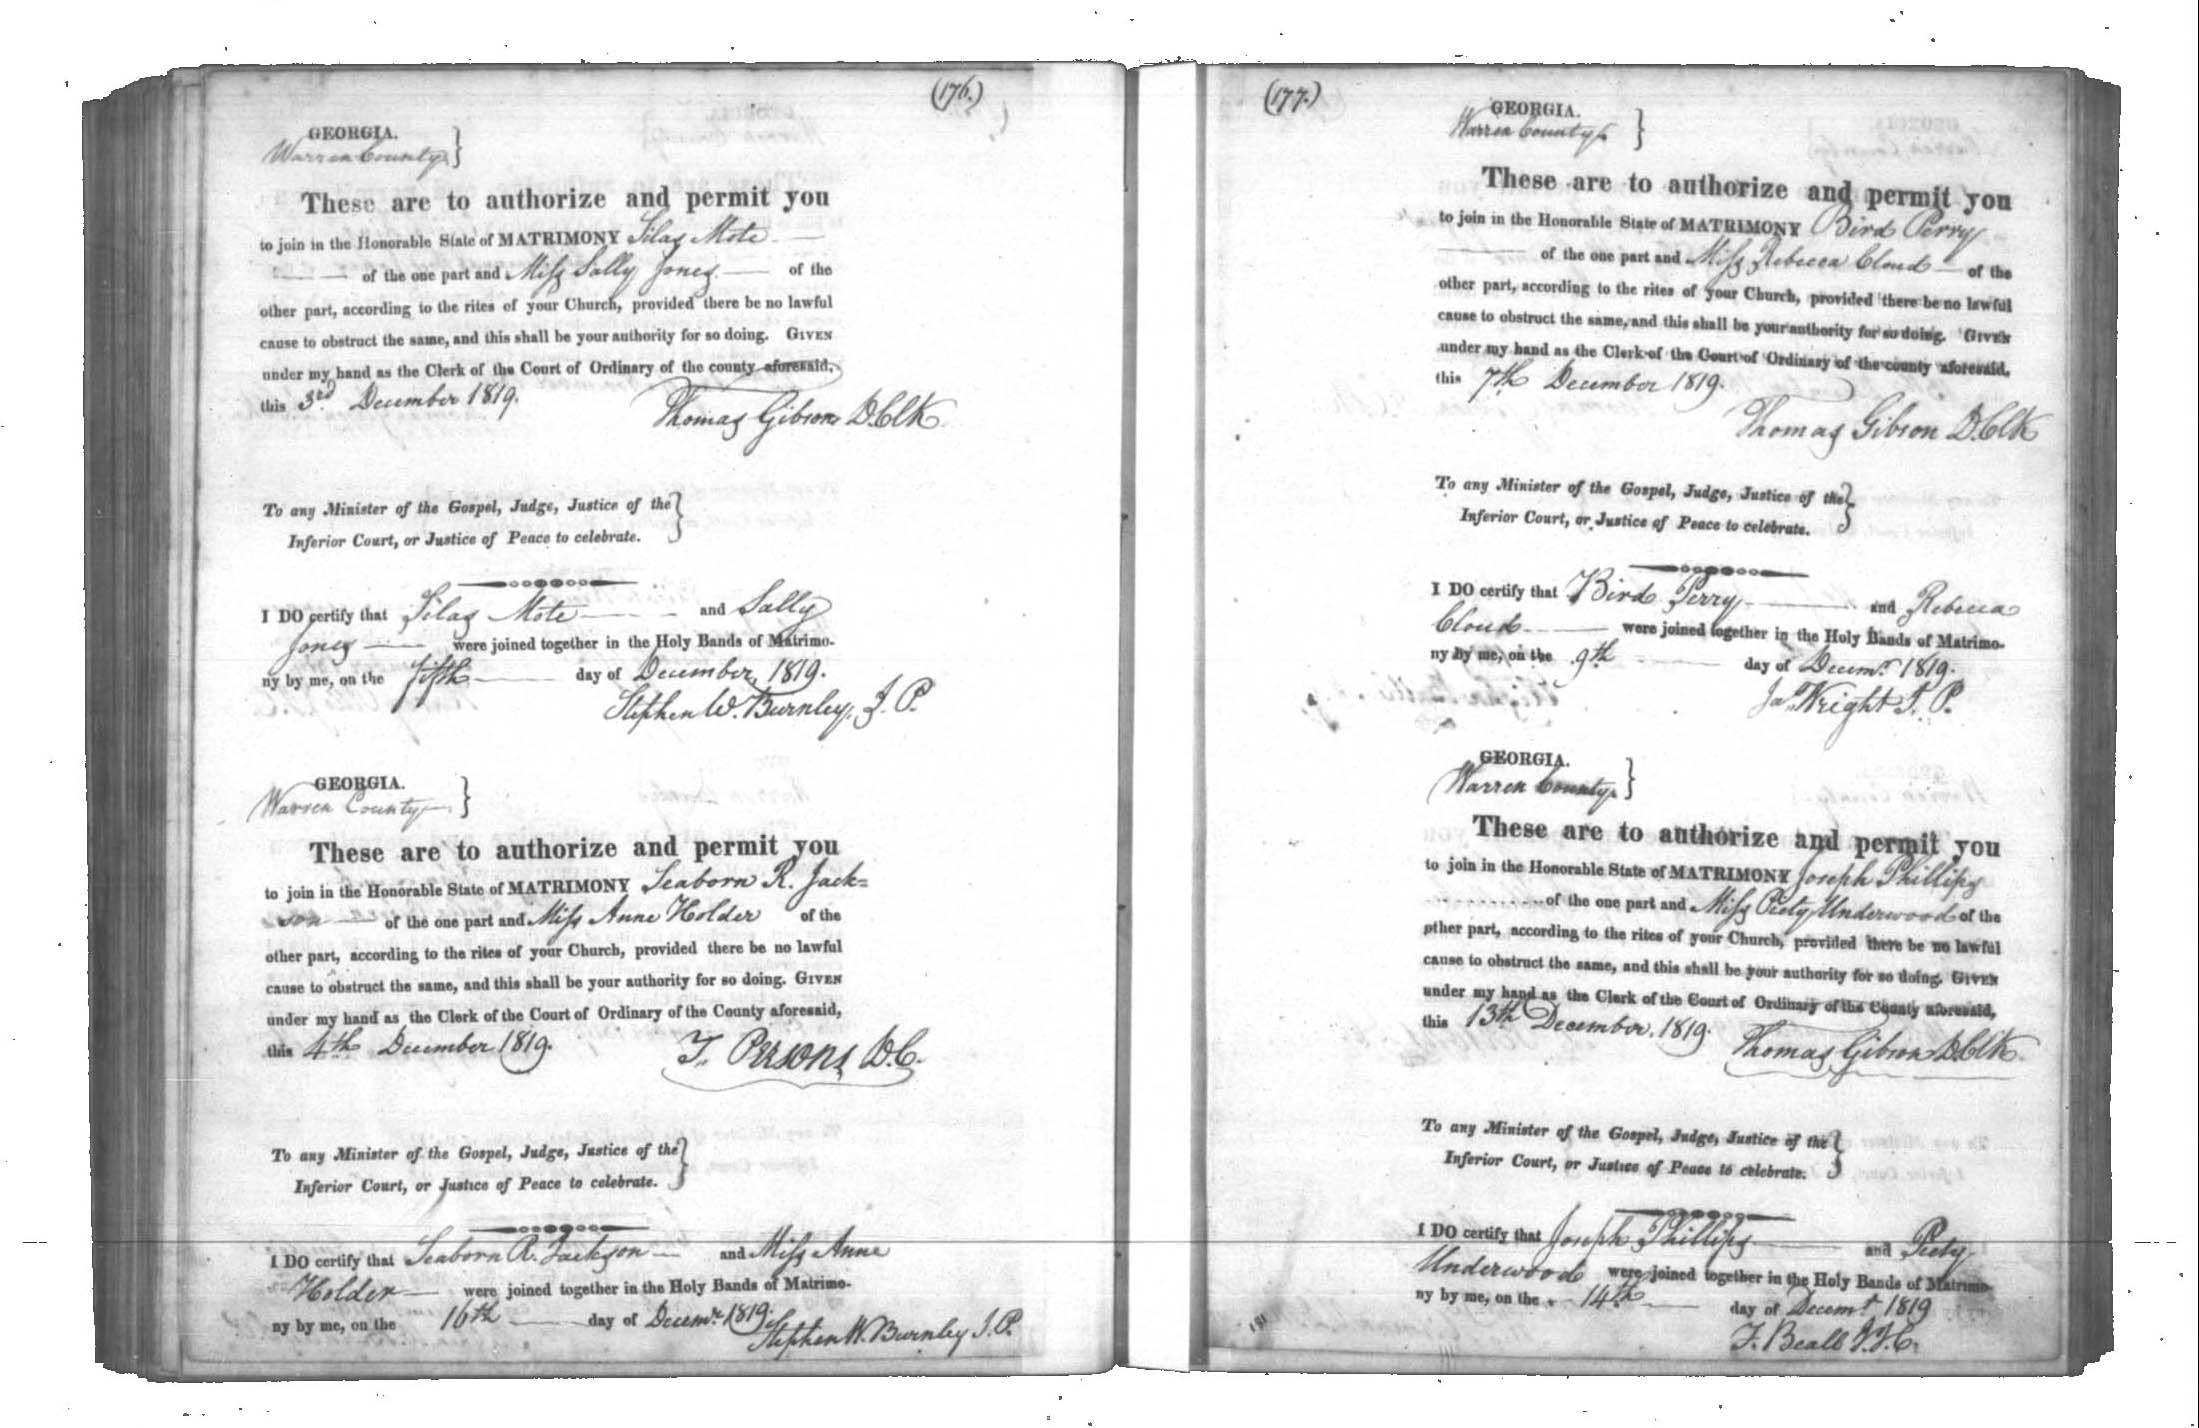 (176.)
GEORGIA.
Warren County }
These are to authorize and permit you
to join in the Honorable State of MATRIMONY Silas Mote
of the one part and Miss Sally Jones of the
other part, according to the rites of your Church, provided there be no lawful
cause to obstruct the same, and this shall be your authority for so doing. GIVEN
under my hand as the Clerk of the Court of Ordinary of the county aforesaid,
this 3rd December 1819.
Thomas Gibson D.Clk
To any Minister of the Gospel, Judge, Justice of the }
Inferior Court, or Justice of Peace to celebrate.
I DO certify that Silas Mote and Sally
Jones were joined together in the Holy Bands of Matrimo-
ny by me, on the fifth day of December, 1819.
Stephen W. Burnley, J. P.
GEORGIA.
Warren County }
These are to authorize and permit you
to join in the Honorable State of MATRIMONY Seaborn R. Jack=
son of the one part and Miss Anne Holder of the
other part, according to the rites of your Church, provided there be no lawful
cause to obstruct the same, and this shall be your authority for so doing. GIVEN
under my hand as the Clerk of the Court of Ordinary of the County aforesaid,
this 4th December 1819.
T. Persons D.C.
To any Minister of the Gospel, Judge, Justice of the }
Inferior Court, or Justice of Peace to celebrate.
I DO certify that Seaborn R. Jackson and Miss Anne
Holder were joined together in the Holy Bands of Matrimo-
ny by me, on the 16th day of Decemr. 1819.
Stephen W. Burnley J. P.
(177.)
GEORGIA.
Warren County }
These are to authorize and permit you
to join in the Honorable State of MATRIMONY Bird Perry
of the one part and Miss Rebecca Cloud of the
other part, according to the rites of your Church, provided there be no lawful
cause to obstruct the same, and this shall be your authority for so doing. GIVEN
under my hand as the Clerk of the Court of Ordinary of the county aforesaid,
this 7th December 1819.
Thomas Gibson D.Clk
To any Minister of the Gospel, Judge, Justice of the }
Inferior Court, or Justice of Peace to celebrate.
I DO certify that Bird Perry and Rebecca
Cloud were joined together in the Holy Bands of Matrimo-
ny by me, on the 9th day of Decemr. 1819.
Jas. Wright J. P.
GEORGIA.
Warren County }
These are to authorize and permit you
to join in the Honorable State of MATRIMONY Joseph Phillips
of the one part and Miss Piety Underwood of the
other part, according to the rites of your Church, provided there be no lawful
cause to obstruct the same, and this shall be your authority for so doing. GIVEN
under my hand as the Clerk of the Court of Ordinary of the County aforesaid,
this 13th December, 1819.
Thomas Gibson D.Clk
To any Minister of the Gospel, Judge, Justice of the }
Inferior Court, or Justice of Peace to celebrate.
I DO certify that Joseph Phillips and Piety
Underwood were joined together in the Holy Bands of Matrimo-
ny by me, on the 14th day of Decemr. 1819
F. Beall J.I.C.